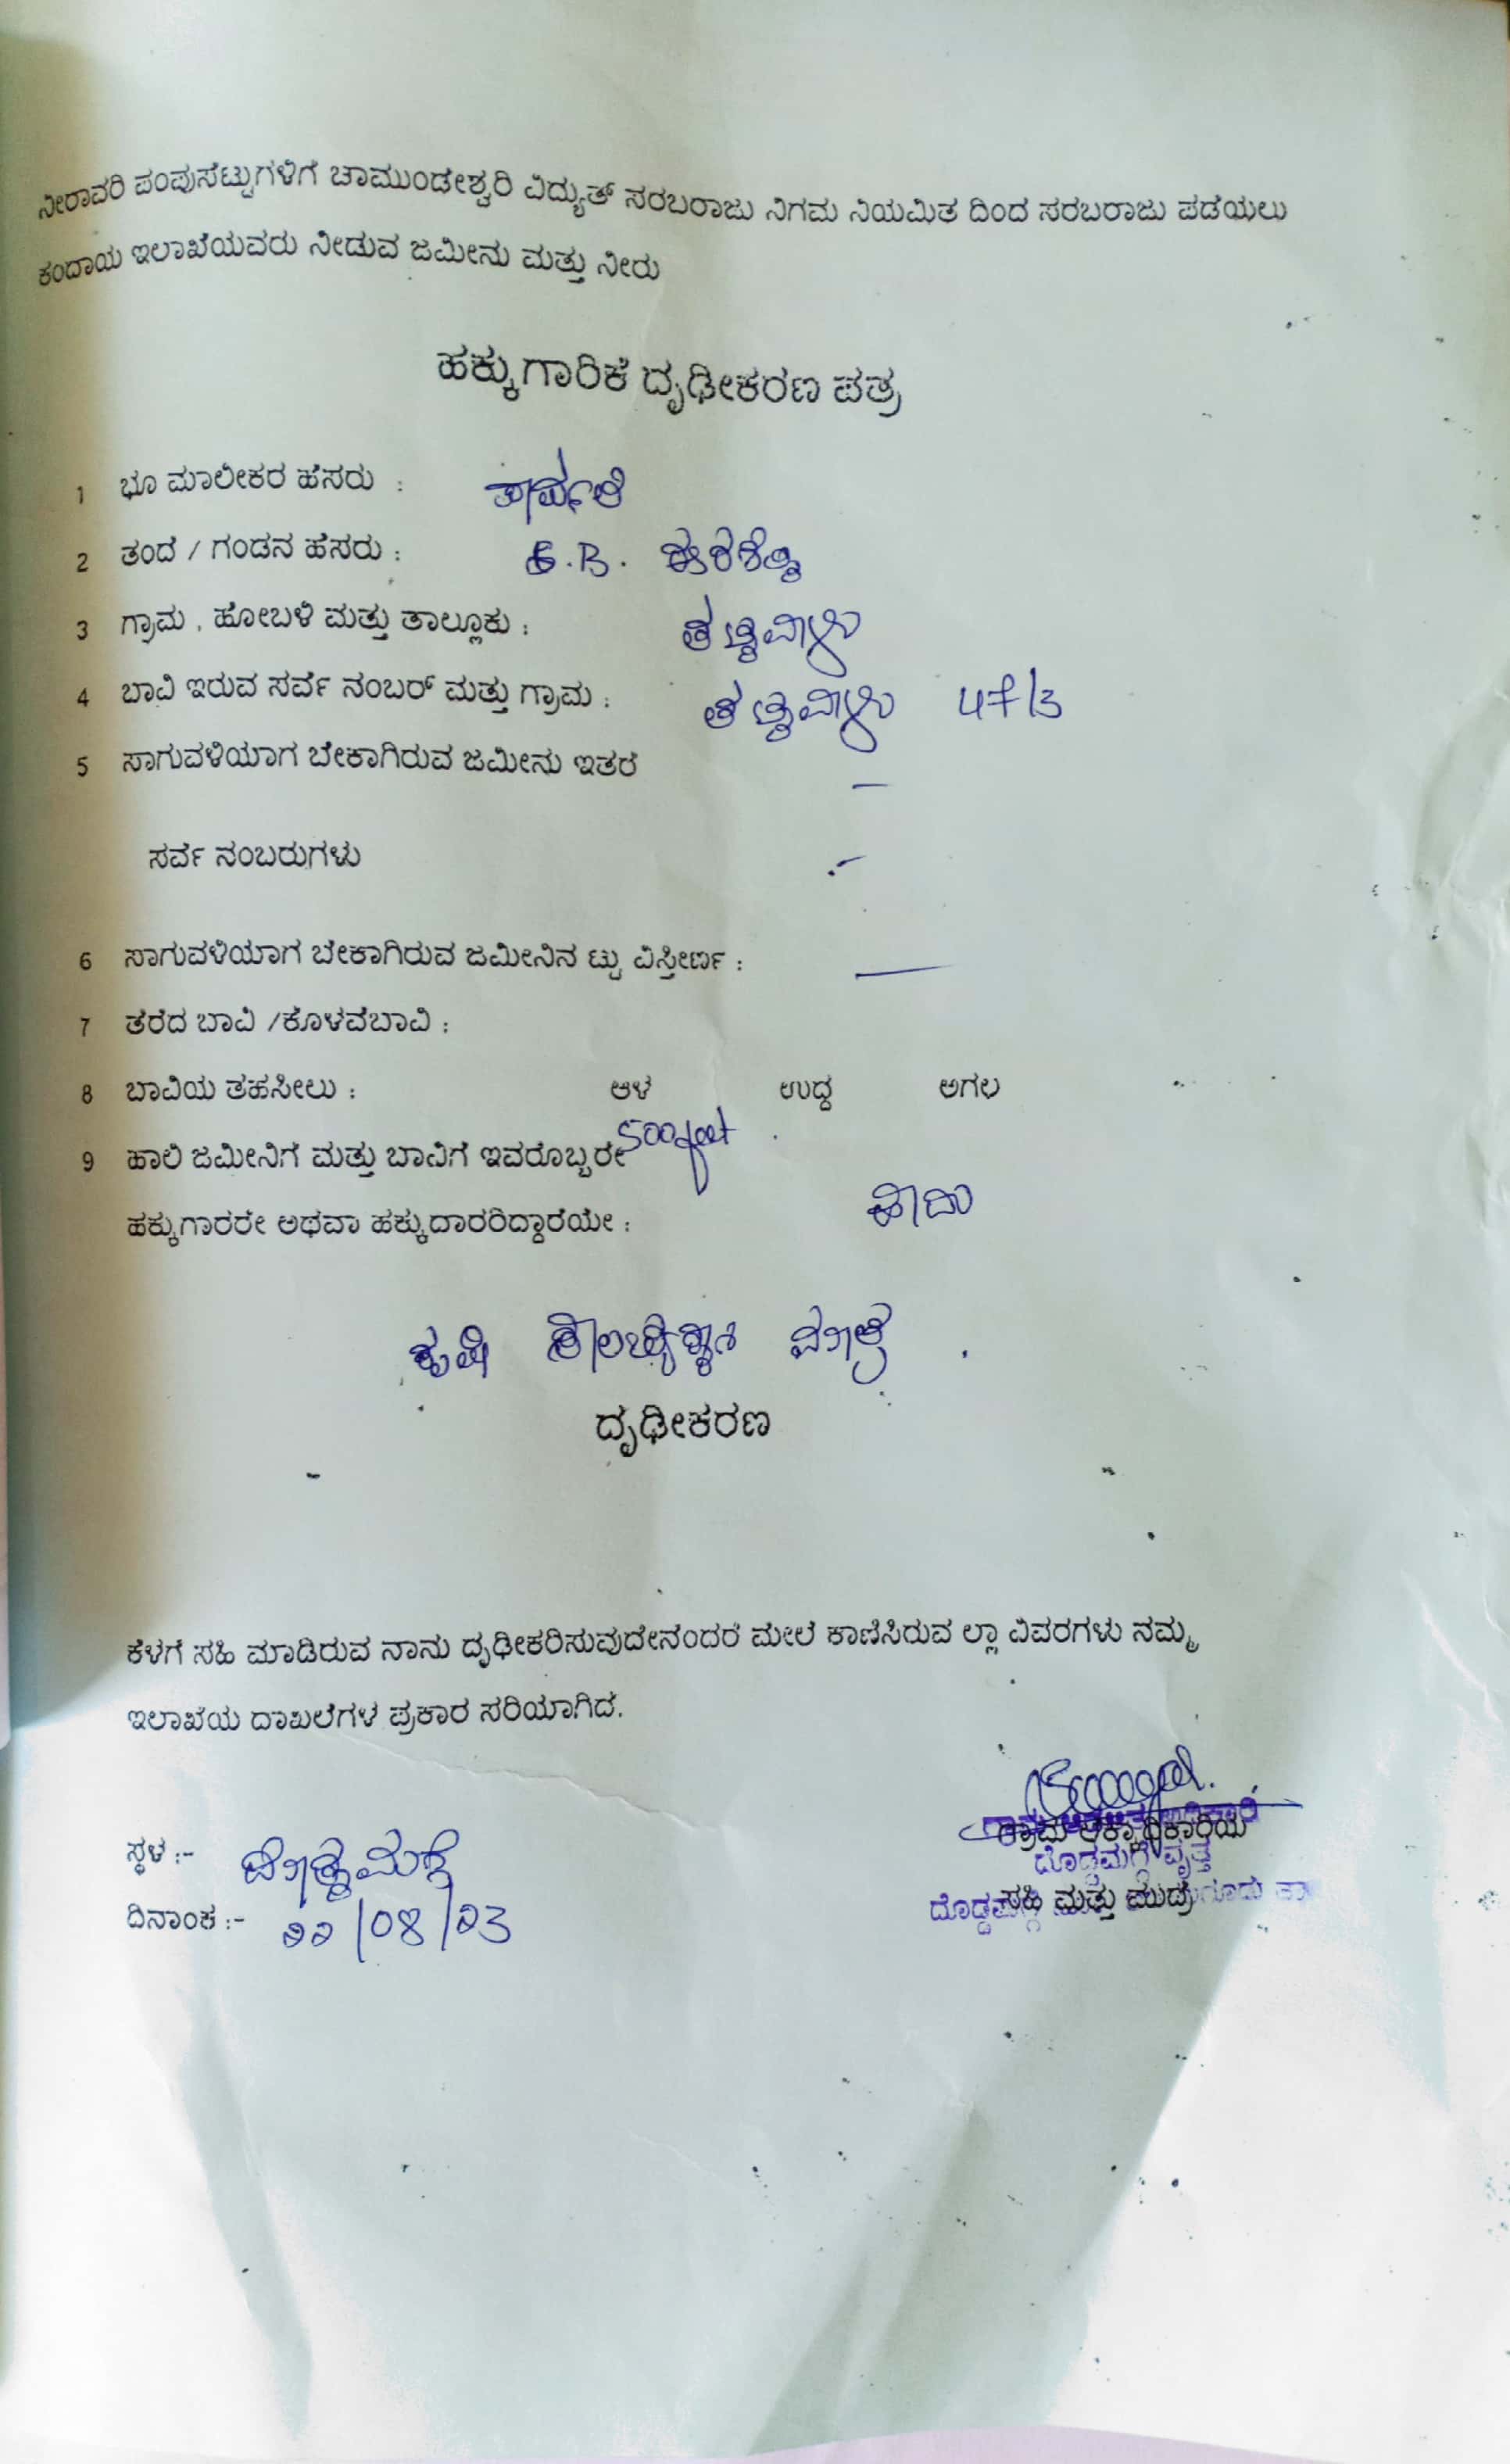 ನೀರಾವರಿ ಪಂಪುಸೆಟ್ಟುಗಳಿಗೆ ಚಾಮುಂಡೇಶ್ವರಿ ವಿದ್ಯುತ್ ಸರಬರಾಜು ನಿಗಮ ನಿಯಮಿತ ದಿಂದ ಸರಬರಾಜು ಪಡೆಯಲು
ಕಂದಾಯ ಇಲಾಖೆಯವರು ನೀಡುವ ಜಮೀನು ಮತ್ತು ನೀರು
ಹಕ್ಕುಗಾರಿಕೆ ದೃಢೀಕರಣ ಪತ್ರ
1 ಭೂ ಮಾಲೀಕರ ಹೆಸರು :
2 ತಂದೆ / ಗಂಡನ ಹೆಸರು :
3 ಗ್ರಾಮ , ಹೋಬಳಿ ಮತ್ತು ತಾಲ್ಲೂಕು :
4 ಬಾವಿ ಇರುವ ಸರ್ವೆ ನಂಬರ್ ಮತ್ತು ಗ್ರಾಮ :
5 ಸಾಗುವಳಿಯಾಗ ಬೇಕಾಗಿರುವ ಜಮೀನು ಇತರೆ –
ಸರ್ವೆ ನಂಬರುಗಳು –
6 ಸಾಗುವಳಿಯಾಗ ಬೇಕಾಗಿರುವ ಜಮೀನಿನ ಟ್ಟು ವಿಸ್ತೀರ್ಣ : —
7 ತೆರೆದ ಬಾವಿ /ಕೊಳವೆಬಾವಿ :
8 ಬಾವಿಯ ತಹಸೀಲು : ಆಳ ಉದ್ದ ಅಗಲ
500feet
9 ಹಾಲಿ ಜಮೀನಿಗೆ ಮತ್ತು ಬಾವಿಗೆ ಇವರೊಬ್ಬರೇ
ಹಕ್ಕುಗಾರರೇ ಅಥವಾ ಹಕ್ಕುದಾರರಿದ್ದಾರೆಯೇ : ಹೌದು
ಕೃಷಿ
ದೃಢೀಕರಣ
ಕೆಳಗೆ ಸಹಿ ಮಾಡಿರುವ ನಾನು ದೃಢೀಕರಿಸುವುದೇನೆಂದರೆ ಮೇಲೆ ಕಾಣಿಸಿರುವ ಲ್ಲಾ ವಿವರಗಳು ನಮ್ಮ
ಇಲಾಖೆಯ ದಾಖಲೆಗಳ ಪ್ರಕಾರ ಸರಿಯಾಗಿದೆ.
ಗ್ರಾಮ ಲೆಕ್ಕಾಧಿಕಾರಿಯ
ಸ್ಥಳ :- ದೊಡ್ಡಮಗ್ಗೆ
ದೊಡ್ಡಮಗ್ಗೆ ವೃತ್ತ
ಸಹಿ ಮತ್ತು ಮುದ್ರೆ
ದಿನಾಂಕ :- 22/08/23